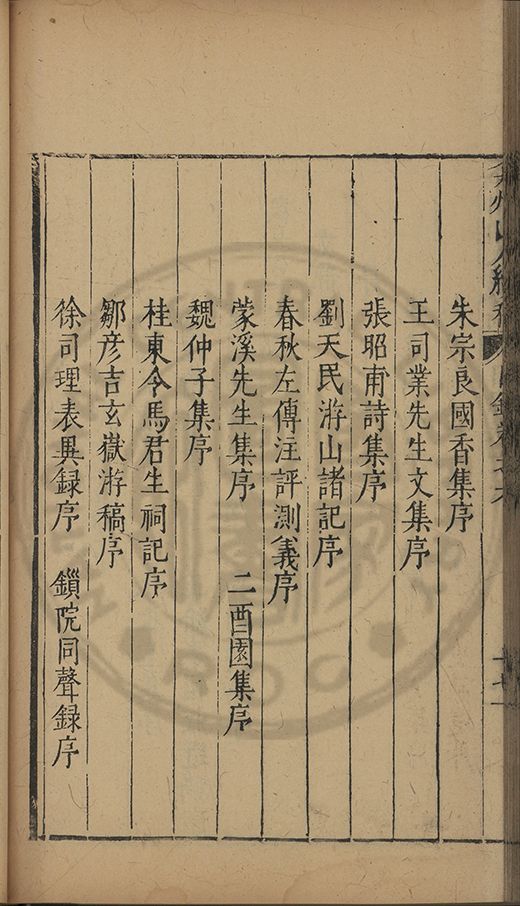 朱宗良國香集序
王司業先生文集序
張昭甫詩集序
劉天民游山諸記序
春秋左傳注評測義序
蒙溪先生集序 二酉園集序
魏仲子集序
桂東令馬君生祠記序
鄒彥吉玄嶽游稿序
徐司理表異録序 鎖院同聲録序